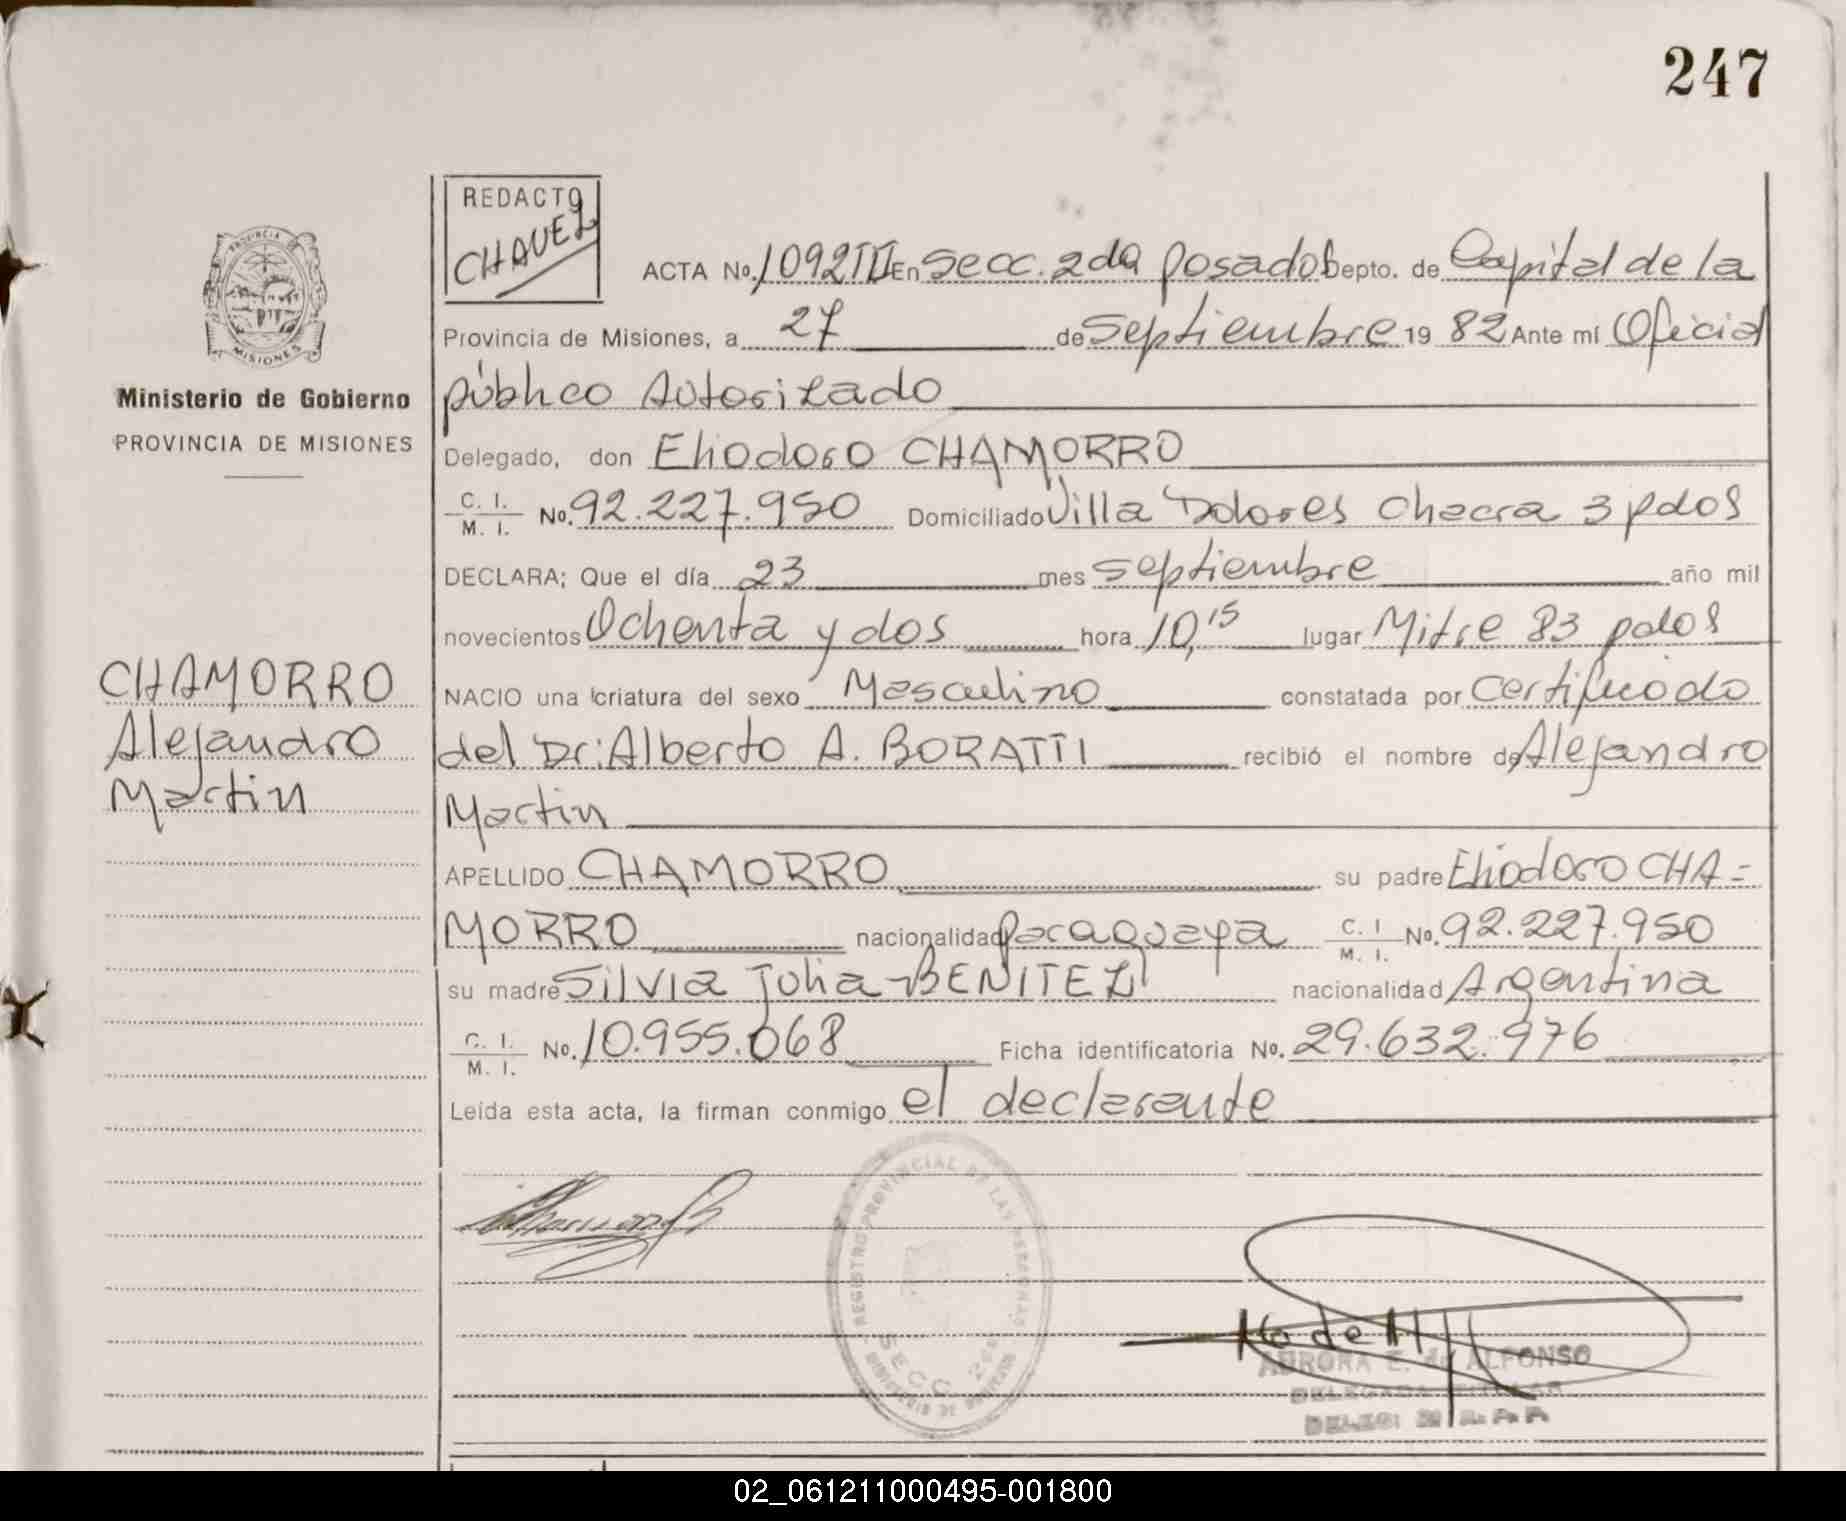 247
REDACTO
CHAVEZ
ACTA No. 1092 III En Secc. 2da Posadas Depto. de Capital de la
Provincia de Misiones, a 27 de Septiembre 19 82 Ante mí Oficial
público Autorizado
PROVINCIA DE
MISIONES
Ministerio de Gobierno
PROVINCIA DE MISIONES
Delegado, don Eliodoro CHAMORRO
C. I. / M. I. No. 92.227.950 Domiciliado Villa Dolores Chacra 3 Pdas
DECLARA; Que el día 23 mes septiembre año mil
novecientos Ochenta y dos hora 10,15 lugar Mitre 83 pdas
CHAMORRO
Alejandro
Martin
NACIO una criatura del sexo Masculino constatada por certificado
del Dr: Alberto A. BORATTI recibió el nombre de Alejandro
Martin
APELLIDO CHAMORRO su padre Eliodoro CHA=
MORRO nacionalidad Paraguaya C. I / M. I. No. 92.227.950
su madre Silvia Julia BENITEZ nacionalidad Argentina
C. I. / M. I. No. 10.955.068 Ficha identificatoria No. 29.632.976
Leída esta acta, la firman conmigo el declarante
REGISTRO PROVINCIAL DE LAS PERSONAS
SECC. 2da
AURORA E. de ALFONSO
DELEGADA TITULAR
02_061211000495-001800